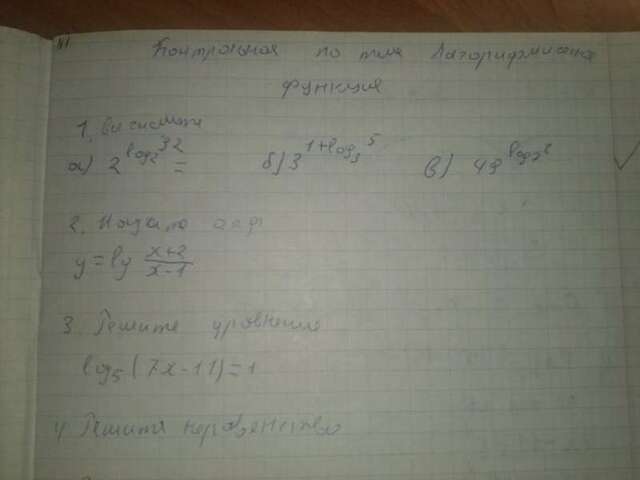 Контрольная по теме Логорифмическая
функция
1. Вычислите
а) 2^log₂32 = б) 3^1+log₃5 в) 49^log₇2
2. Найти
y = lg (x+2)/(x-1)
3. Решите уровнение
log₅(7x-11)=1
4 Решите неравенство